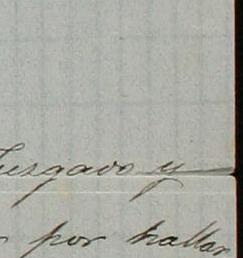 Jusgavo y
por hallar